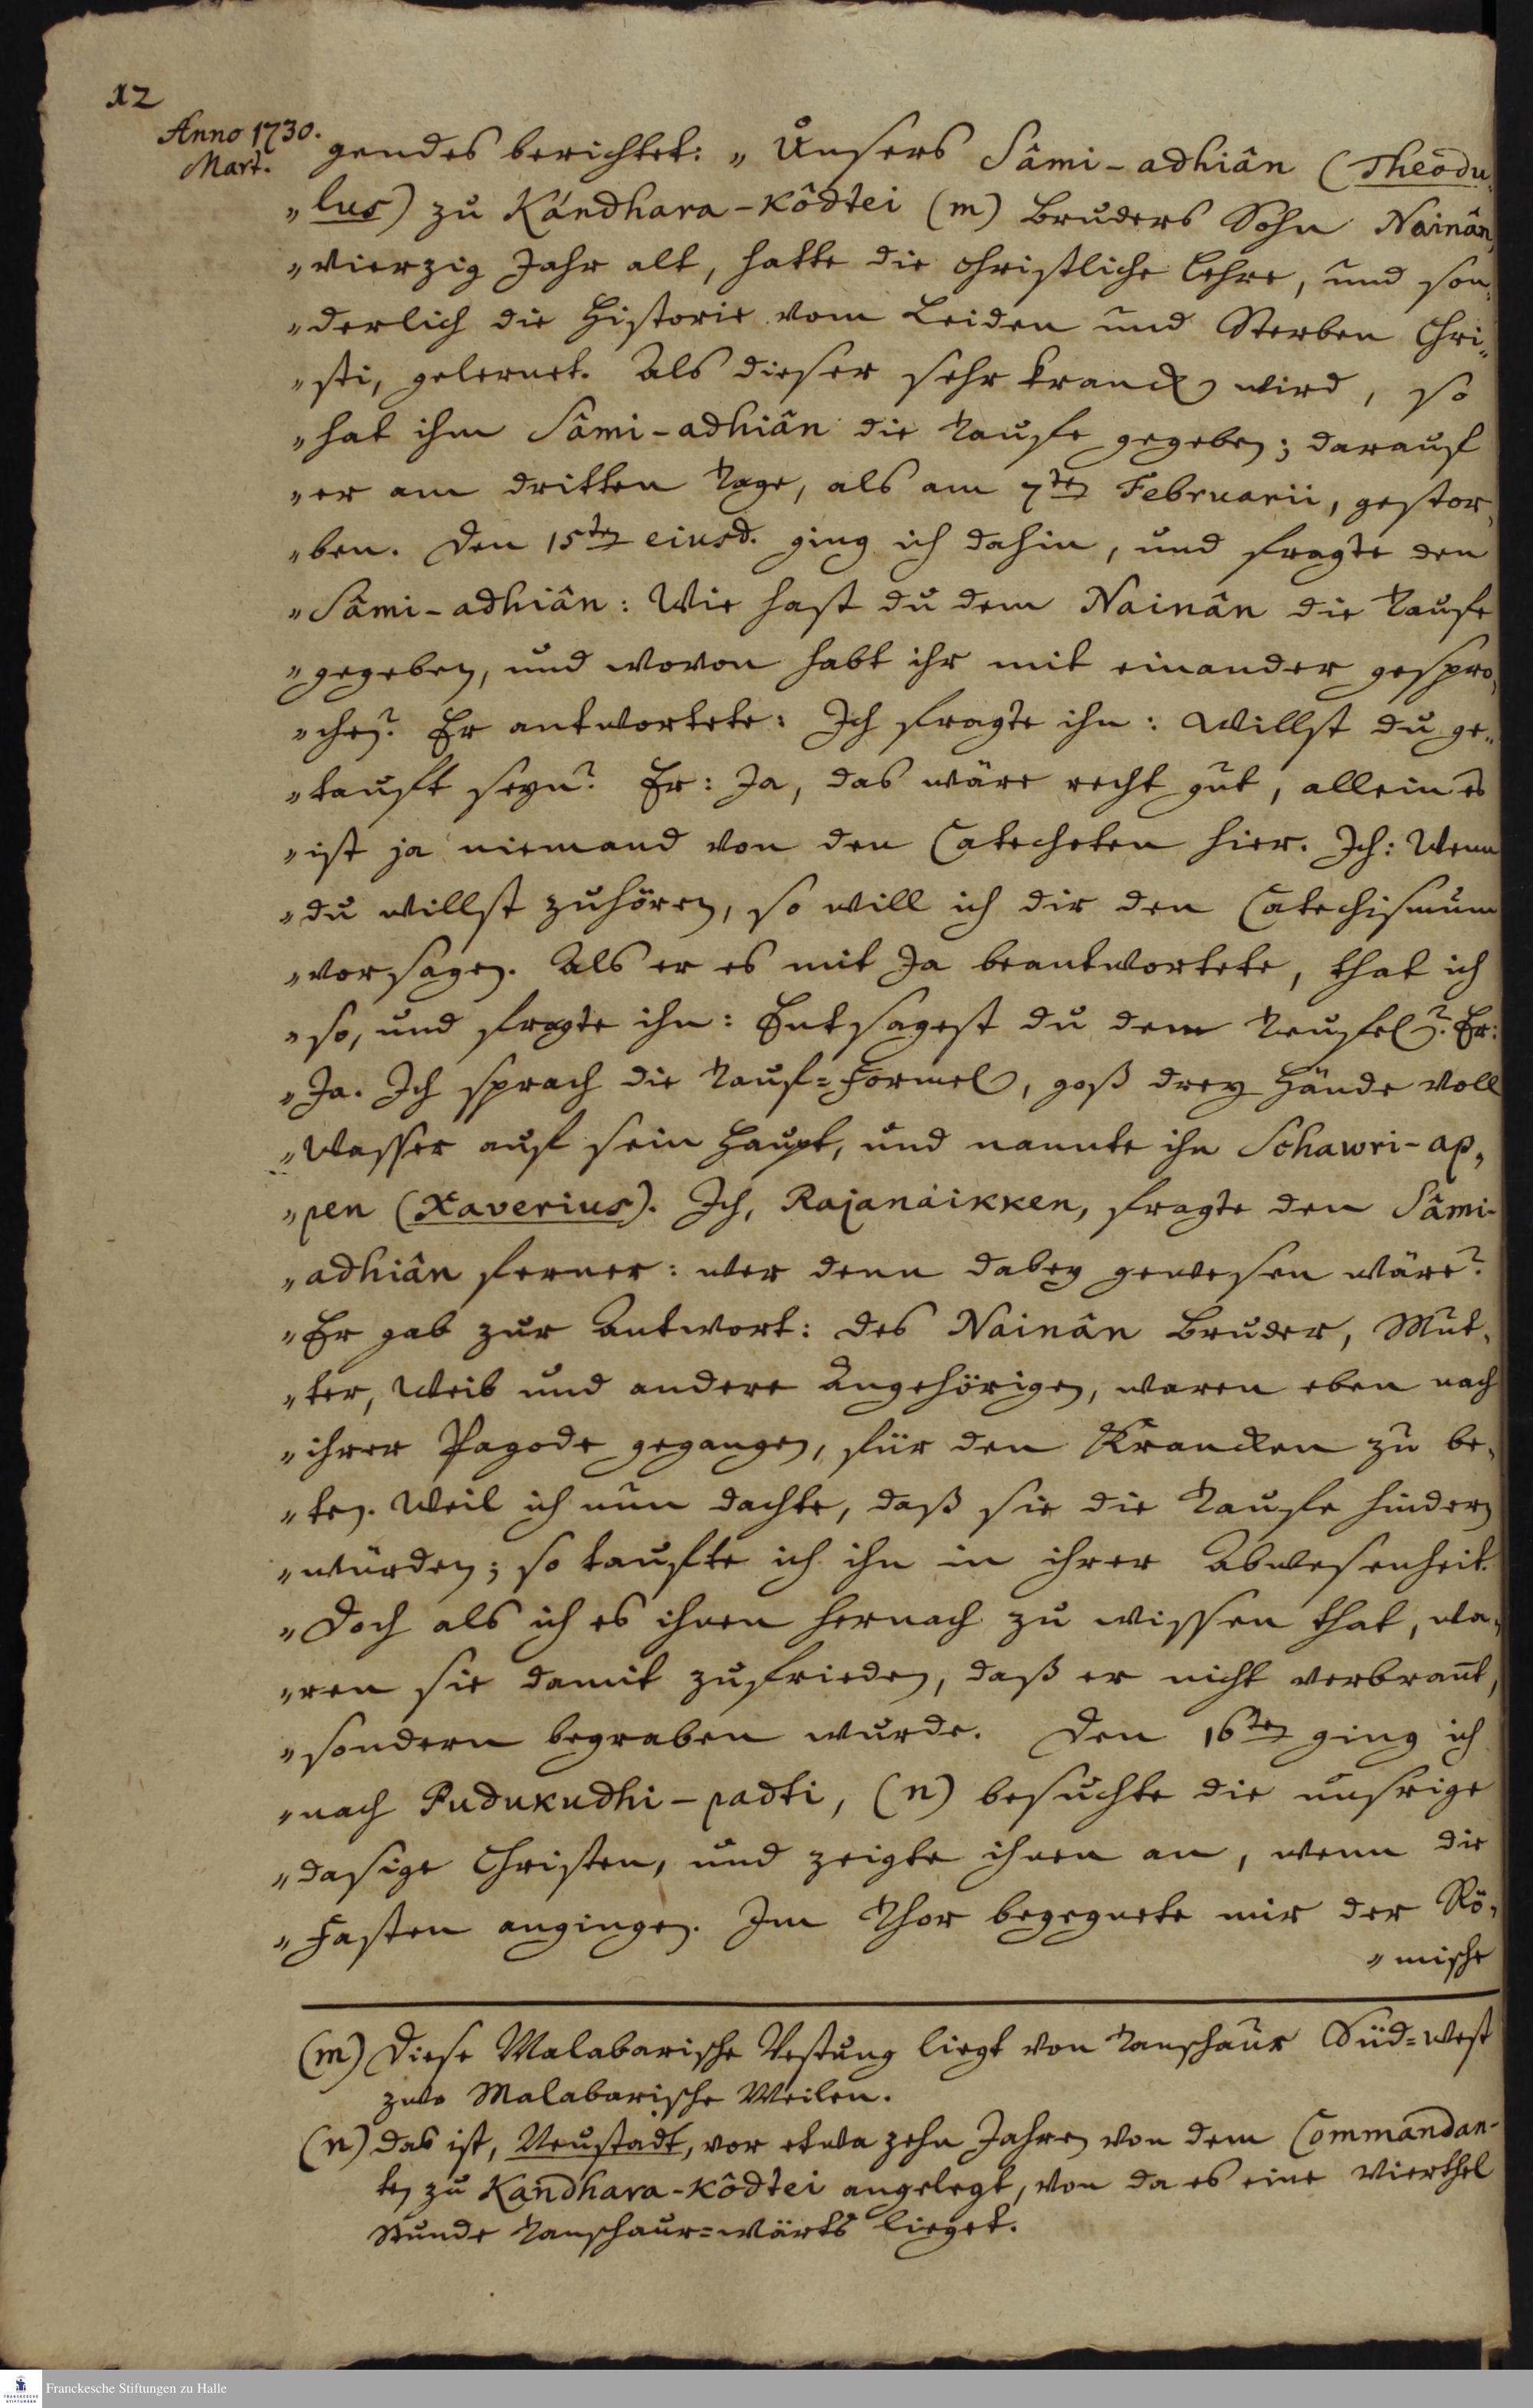 12
Anno 1730.
Mart.
gendes berichtet: „Unsers Sâmi-adhiân (Theodu„
„lus) zu Kándhara-Kôdtei (m) Bruders Sohn Nainân,
„vierzig Jahr alt, hatte die christliche Lehre, und son„
„derlich die Historie vom Leiden und Sterben Chri„
„sti, gelernet. Als dieser sehr kranck wird, so
„hat ihm Sâmi-adhiân die Taufe gegeben; darauf
„er am dritten Tage, als am 7ten Februarii, gestor„
„ben. Den 15ten eiusd. ging ich dahin, und fragte den
„Sâmi-adhiân: Wie hast du dem Nainân die Taufe
„gegeben, und wovon habt ihr mit einander gespro„
„chen? Er antwortete: Ich fragte ihn: Willst du ge„
„tauft seyn? Er: Ja, das wäre recht gut, allein es
„ist ja niemand von den Catecheten hier. Ich: Wenn
„du willst zuhören, so will ich dir den Catechismum
„vorsagen. Als er es mit Ja beantwortete, that ich
„so, und fragte ihn: Entsagest du dem Teufel? Er:
„Ja. Ich sprach die Tauf=Formel, goß drey Hände voll
„Wasser auf sein Haupt, und nannte ihn Schawri-ap„
„pen (Xaverius). Ich, Rajanaikken, fragte den Sâmi-
„adhiân ferner: wer denn dabey gewesen wäre?
„Er gab zur Antwort: des Nainân Bruder, Mut„
„ter, Weib und andere Angehörigen, waren eben nach
„ihrer Pagode gegangen, für den Krancken zu be„
„ten. Weil ich nun dachte, daß sie die Taufe hindern
„würden; so taufte ich ihn in ihrer Abwesenheit.
„Doch als ich es ihnen hernach zu wissen that, wa„
„ren sie damit zufrieden, daß er nicht verbrañt,
„sondern begraben wurde. Den 16ten ging ich
„nach Pudukudhi-padti, (n) besuchte die unsrige
„dasige Christen, und zeigte ihnen an, wenn die
„Fasten angingen. Im Thor begegnete mir der Rö„
„mische
(m) Diese Malabarische Vestung liegt von Tanschaur Süd=West
zwo Malabarische Meilen.
(n) das ist, Neustadt, vor etwa zehn Jahren von dem Commandan-
ten zu Kandhara-Kôdtei angelegt, von da es eine Vierthel
Stunde Tanschaur=wärts lieget.
Franckesche Stiftungen zu Halle